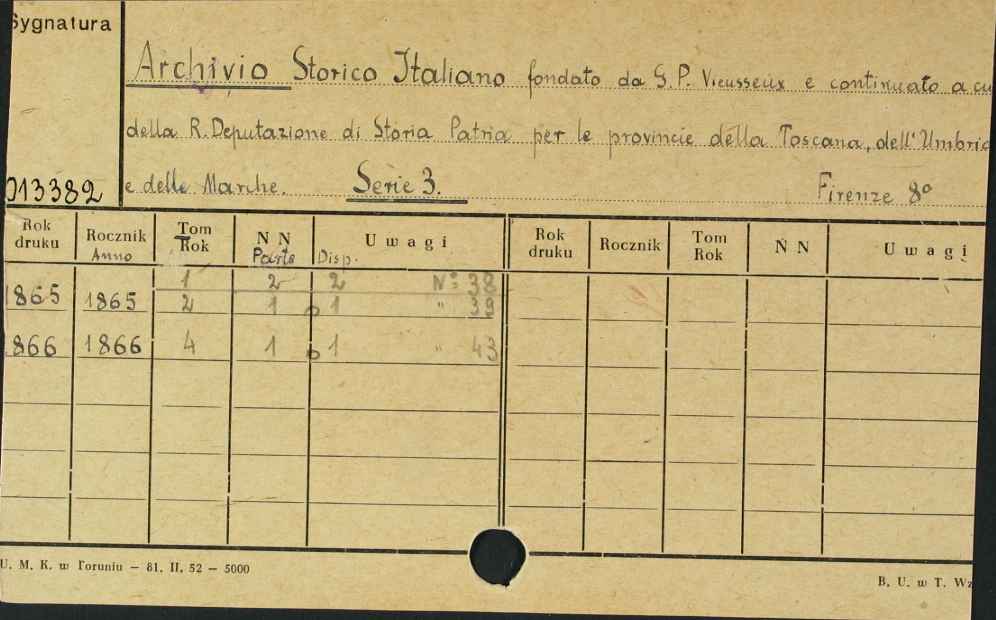 Sygnatura
Archivio Storico Italiano fondato da G. P. Vieusseux e continuato a cu
della R. Deputazione di Storia Patria per le provincie della Toscana, dell'Umbria
013382 e delle Marche. Serie 3. Firenze 8º
Rok druku Rocznik Anno Tom Rok N N Parte Uwagi Disp. Rok druku Rocznik Tom Rok N N Uwagi
1865 1865 1 2 2 Nº 38
2 1 1 " 39
1866 1866 4 1 1 " 43
U. M. K. w Toruniu — 81. II. 52 — 5000
B. U. w T. Wz